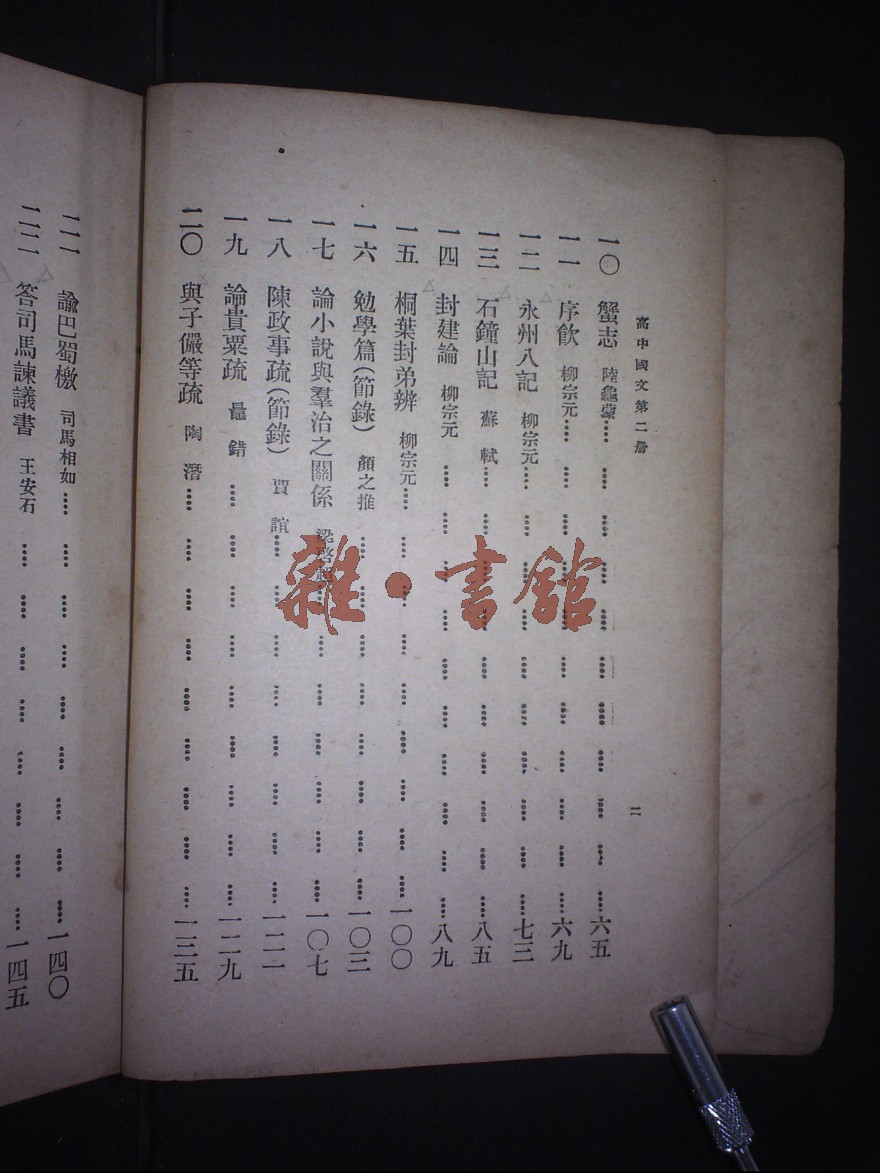 高中國文第二册
二
一〇 蟹志 陸龜蒙 六五
一一 序飲 柳宗元 六九
一二 永州八記 柳宗元 七三
一三 石鐘山記 蘇軾 八五
一四 封建論 柳宗元 八九
一五 桐葉封弟辨 柳宗元 一〇〇
一六 勉學篇(節錄) 顏之推 一〇三
一七 論小說與羣治之關係 梁啓超 一〇七
一八 陳政事疏(節錄) 賈誼 一二一
一九 論貴粟疏 鼂錯 一二九
二〇 與子儼等疏 陶潛 一三五
二一 諭巴蜀檄 司馬相如 一四〇
二二 答司馬諫議書 王安石 一四五
雜·書館